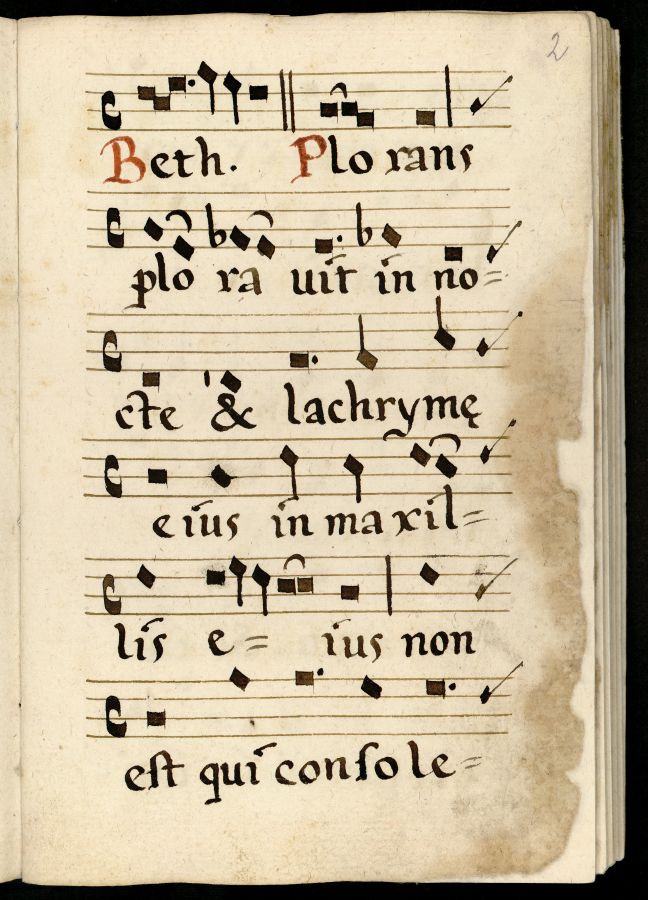 2
Beth. Plo rans
plo ra uit in no=
cte & lachrymę
eius in maxil=
lis e= ius non
est qui console=